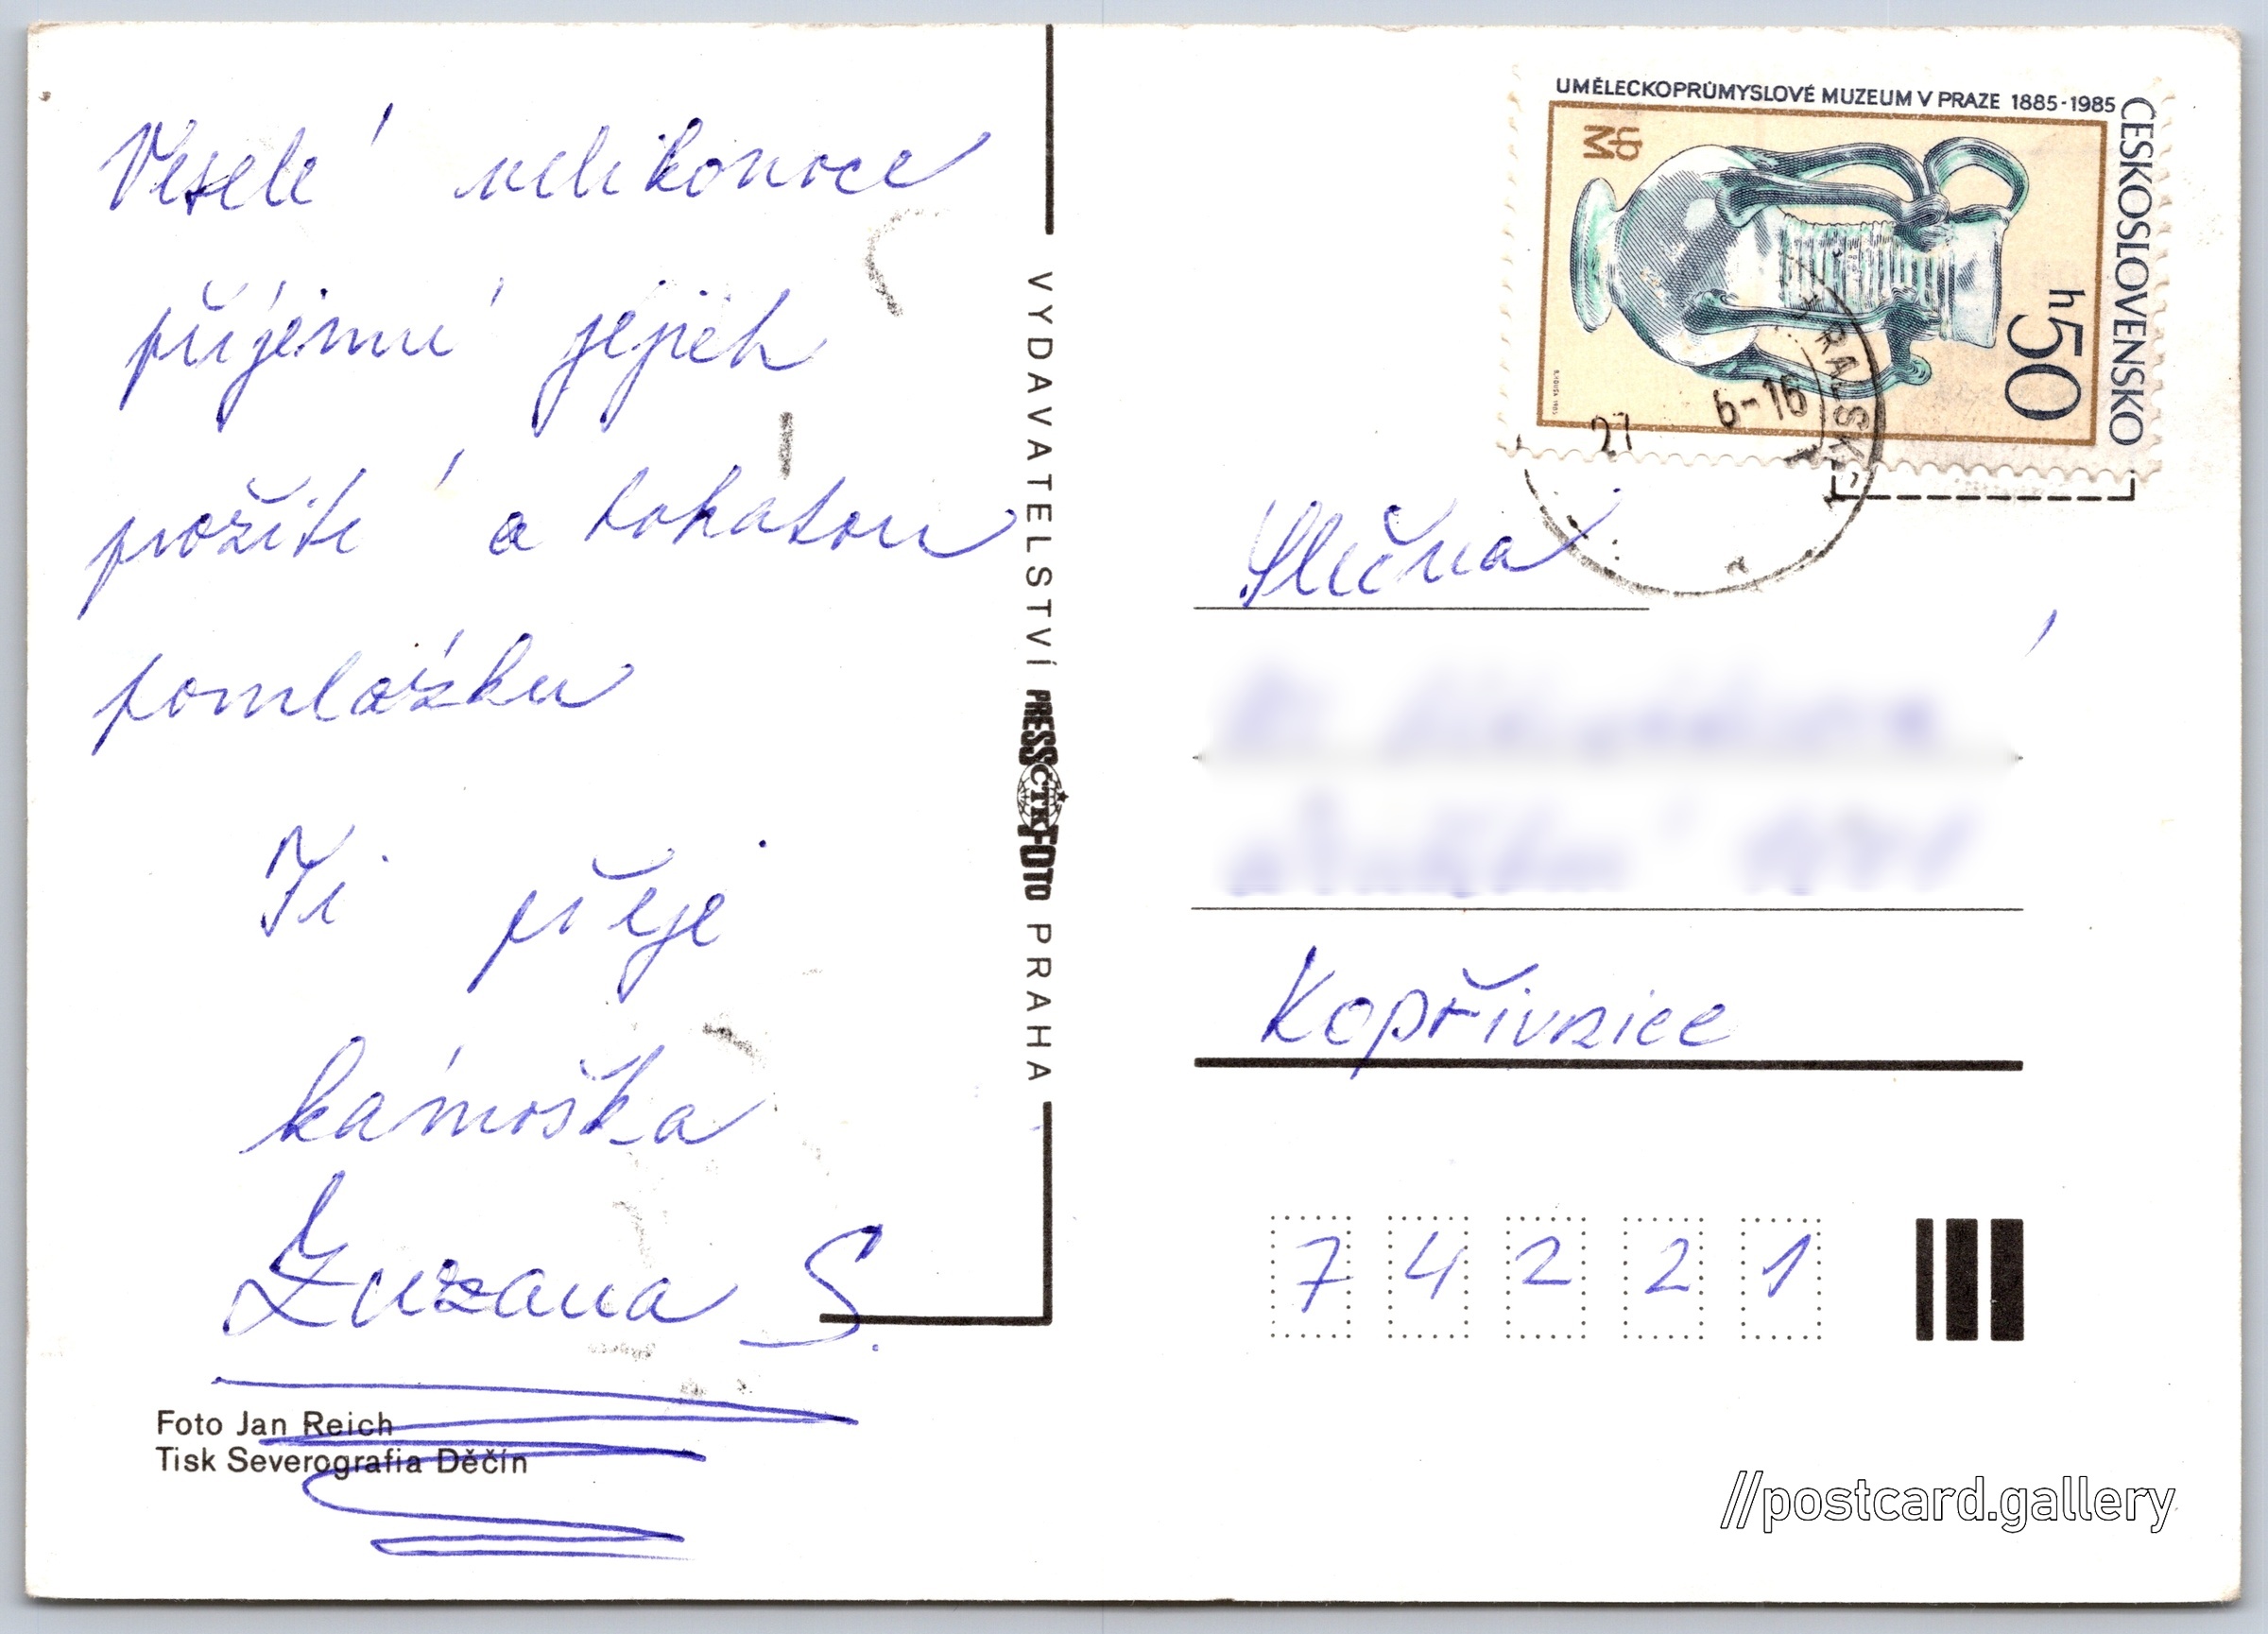 Veselé velikonoce
příjemné jejich
prožití a bohatou
pomlázku
Ti přeje
kámoška
Zuzana S.
Foto Jan Reich
Tisk Severografia Děčín
VYDAVATELSTVÍ PRESSFOTO PRAHA
ČTK
UMĚLECKOPRŮMYSLOVÉ MUZEUM V PRAZE 1885-1985
ČESKOSLOVENSKO
h50
UP
M
6-16
Slečna
Kopřivnice
7 4 2 2 1
//postcard.gallery